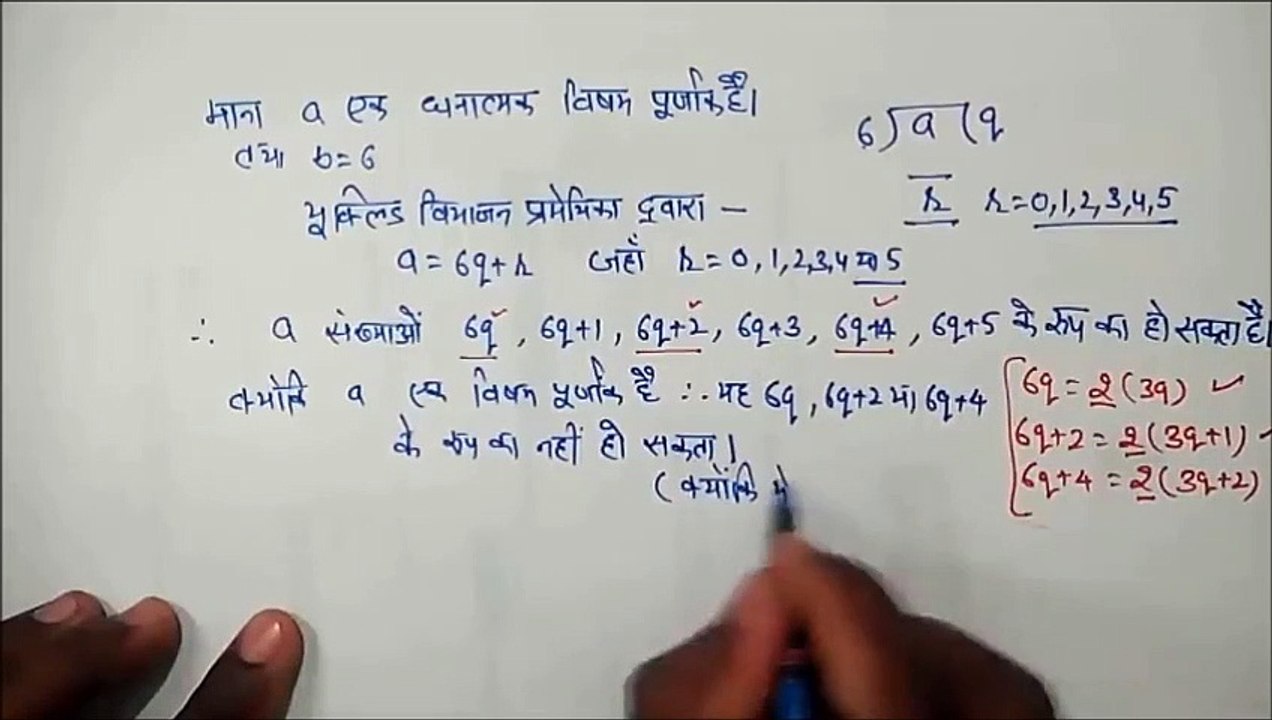 माना a एक धनात्मक विषम पूर्णांक है।
तथा b=6
6)a(q
r r=0,1,2,3,4,5
यूक्लिड विभाजन प्रमेयिका द्वारा –
a=6q+r जहाँ r=0,1,2,3,4 या 5
∴ a संख्याओं 6q, 6q+1, 6q+2, 6q+3, 6q+4, 6q+5 के रूप का हो सकता है।
क्योंकि a एक विषम पूर्णांक है ∴ यह 6q, 6q+2 या 6q+4
के रूप का नहीं हो सकता।
(क्योंकि
6q = 2(3q) ✓
6q+2 = 2(3q+1) ✓
6q+4 = 2(3q+2)